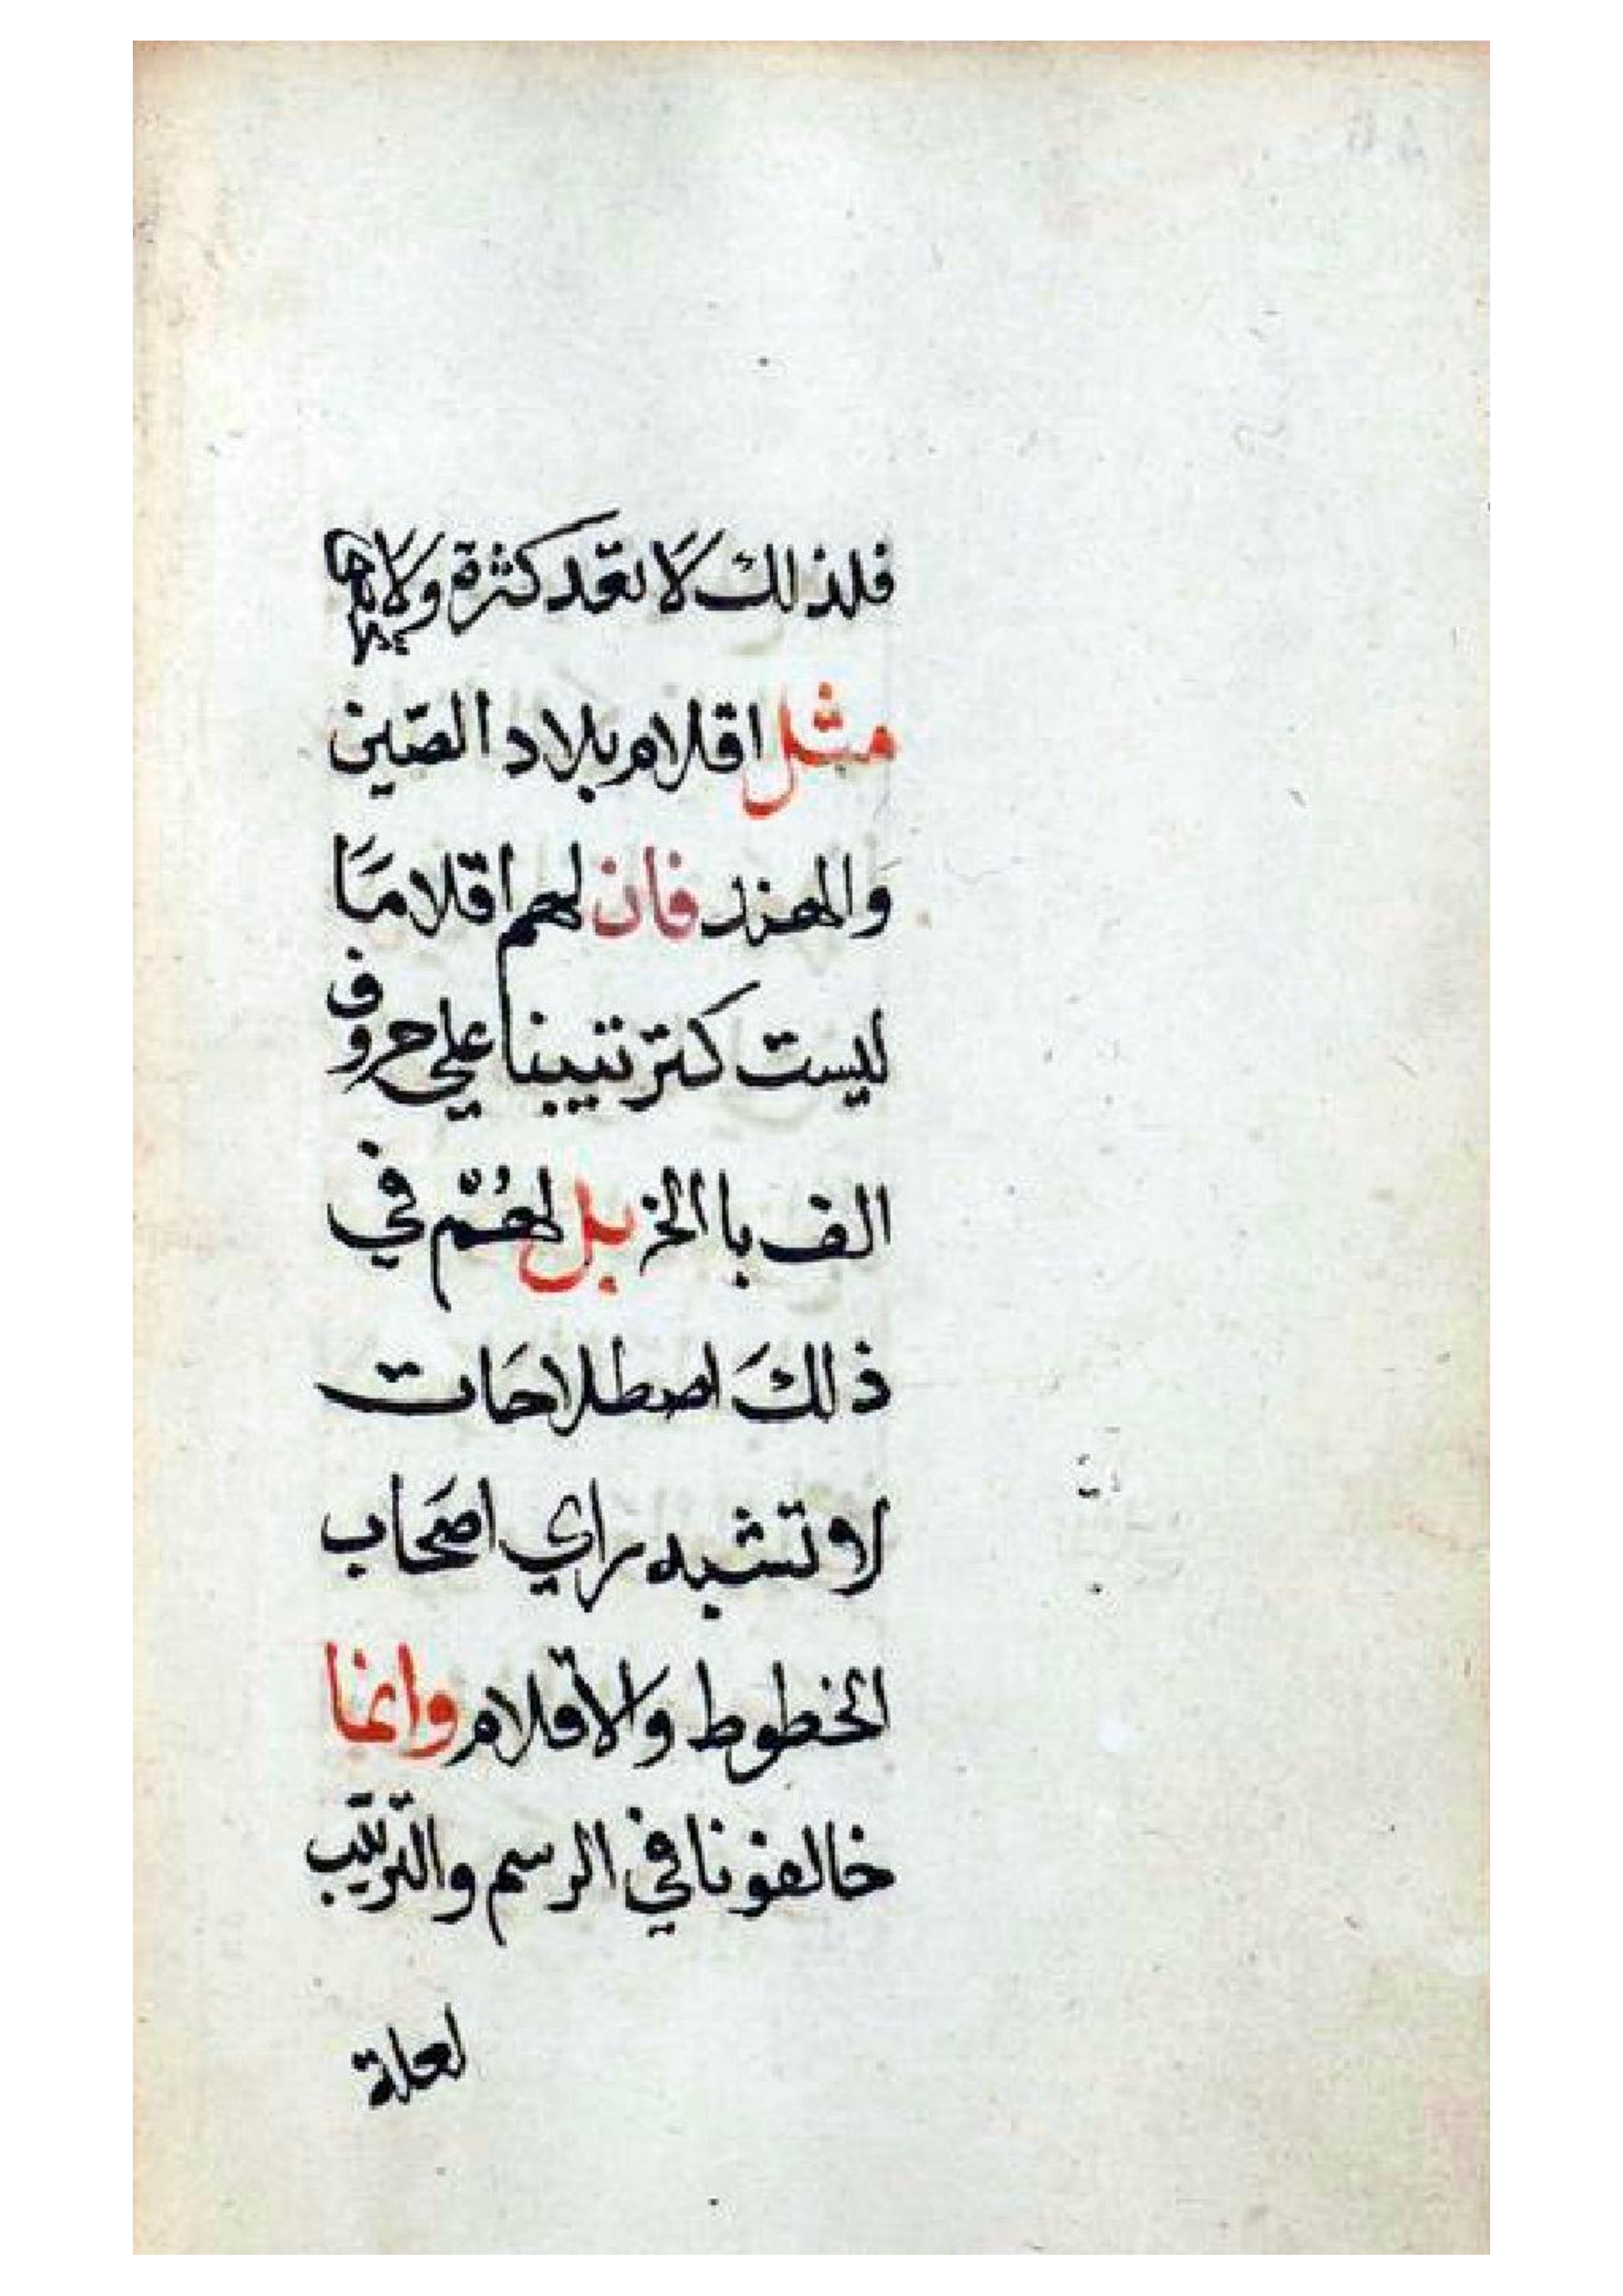 فلذلك لا تعد كثرة ولا
مثل اقلام بلاد الصين
والهند فان لهم اقلاما
ليست كترتيبنا علي حروف
الف با الخ بل لهم في
ذلك اصطلاحات
لا تشبه راي اصحاب
الخطوط والأقلام وانما
خالفونا في الرسم والترتيب
لعلة